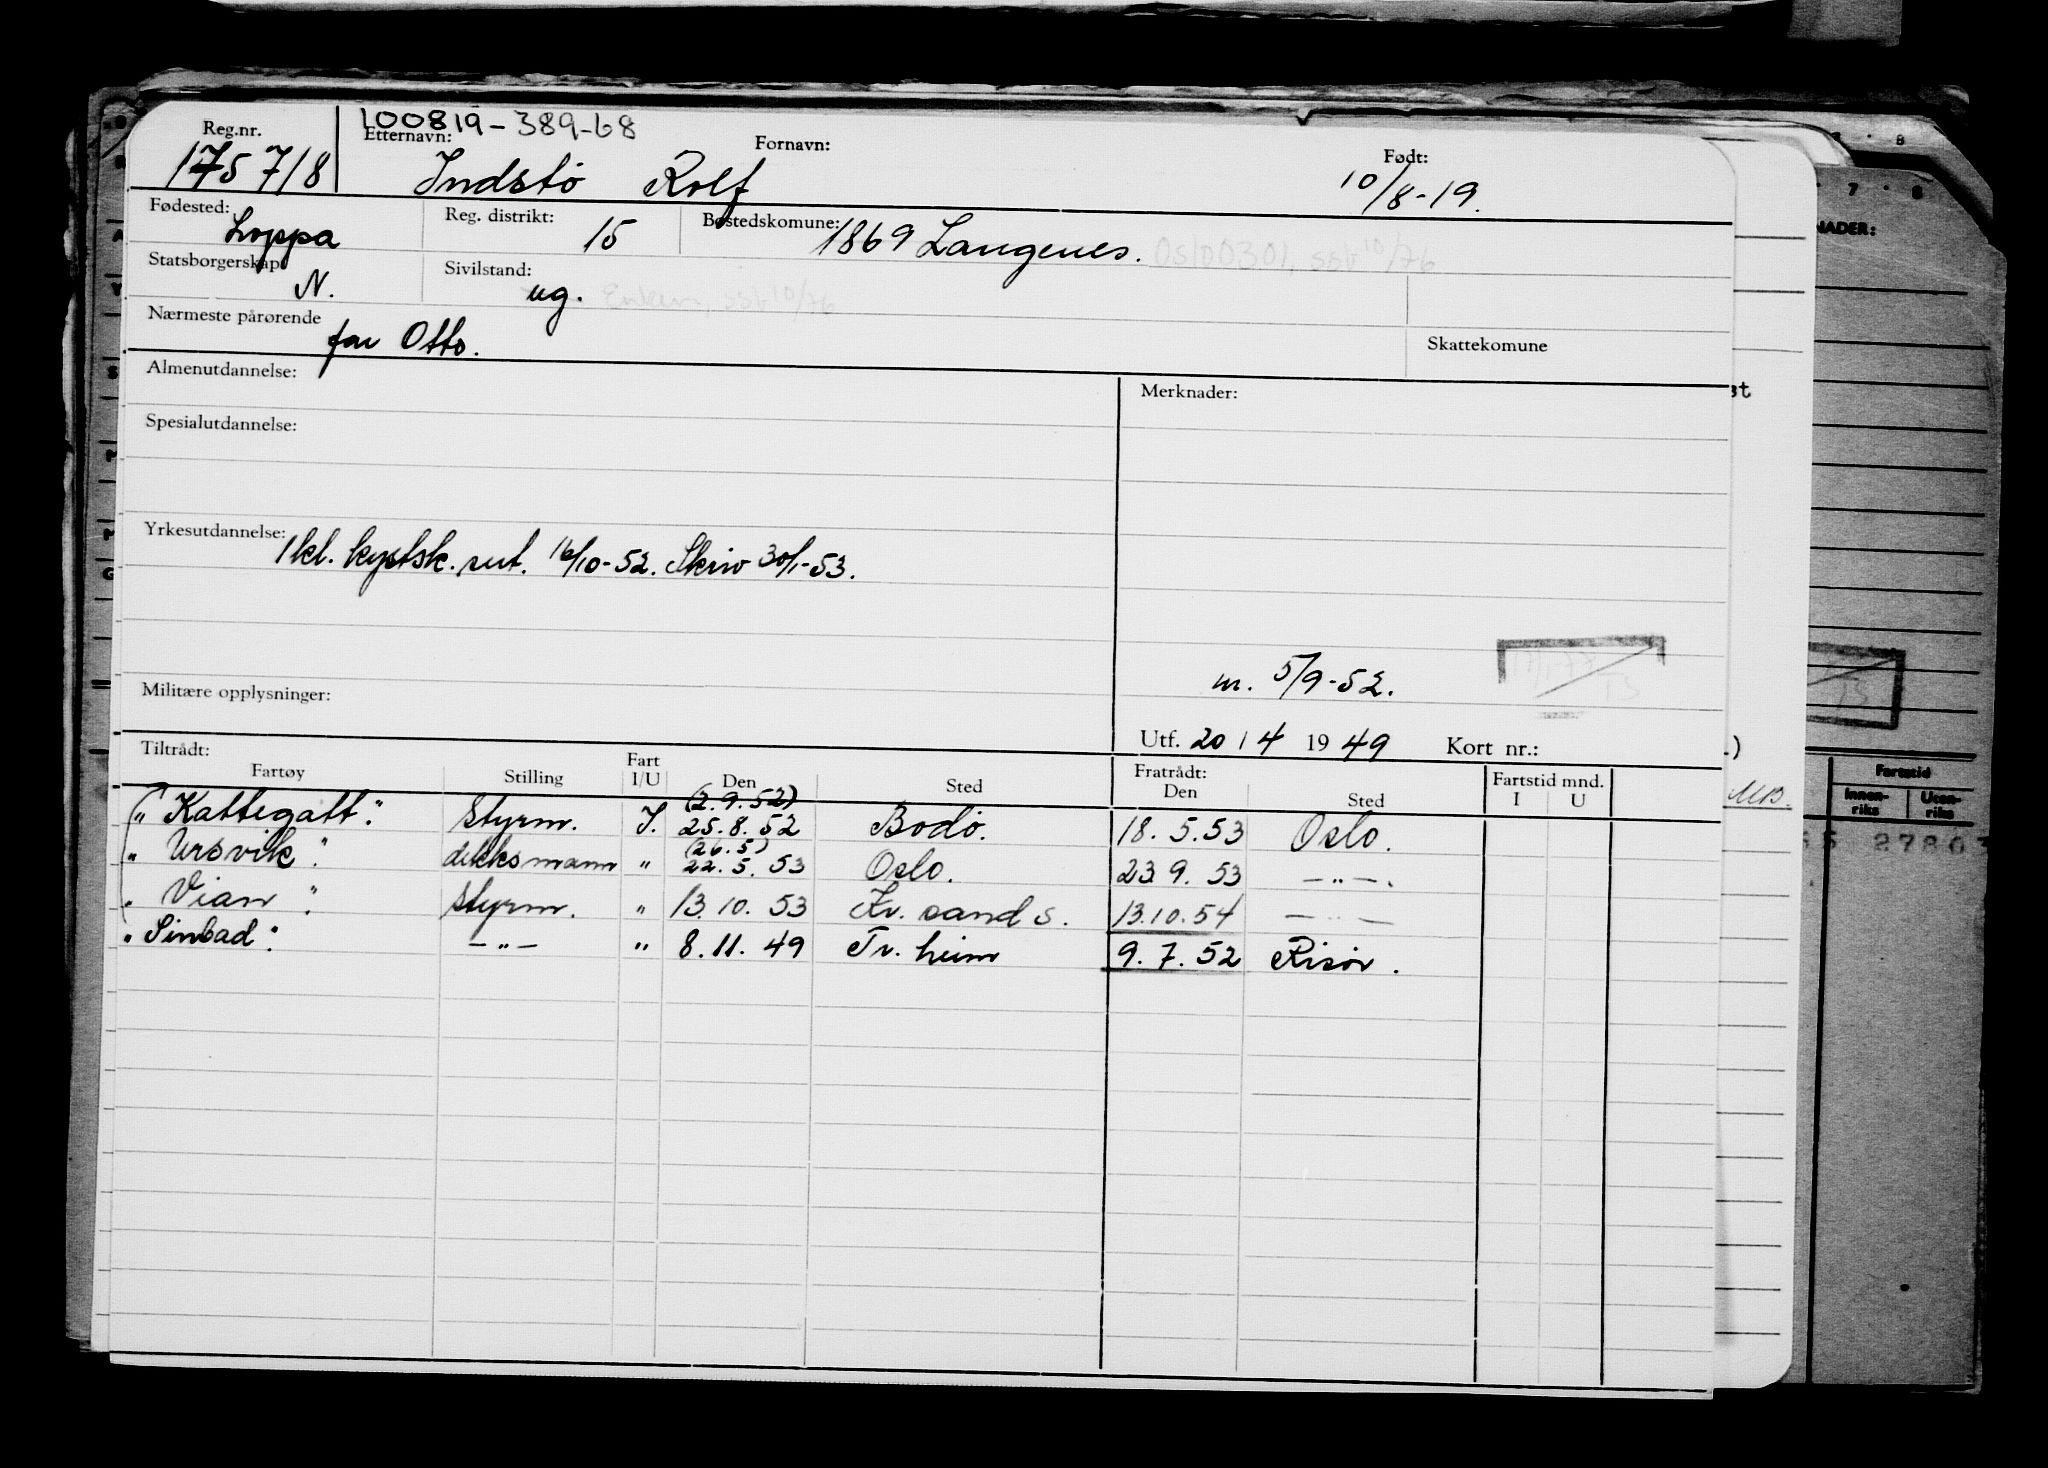 100819-389-68
Reg.nr. Etternavn: Fornavn: Født:
175718 Indstø Rolf 10/8-19.
Fødested: Loppa Reg. distrikt: 15 Bostedskomune: 1869 Langenes. Oslo 0301, ssb 10/76
Statsborgerskap: N. Sivilstand: ug. ssb 10/76
Nærmeste pårørende far Otto. Skattekomune
Almenutdannelse: Merknader:
Spesialutdannelse:
Yrkesutdannelse: 1 kl. kystsk. sert. 16/10-52. Skriv 30/1-53.
m. 5/9-52.
Militære opplysninger:
Utf. 20/4 1949 Kort nr.:
Tiltrådt: Fratrådt: Fartstid mnd.
Fartøy Stilling Fart I/U Den Sted Den Sted I U
(2.9.52)
"Kattegatt". Styrm. I. 25.8.52 Bodø. 18.5.53 Oslo.
(26.5)
"Ursvik". dekksmann " 22.5.53 Oslo. 23 9.53 —"—.
"Vian". Styrm. " 13.10.53 Kr. sand s. 13.10.54 —"—
"Sinbad". —"— " 8.11.49 Tr. heim 9.7.52 Risør.
NADER:
Fartstid
Innen-riks Uten-riks
27803